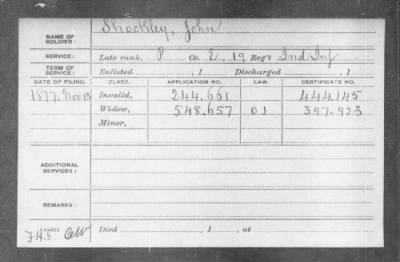 NAME OF SOLDIER: Shockley, John
SERVICE: Late rank, P Co. E, 19 Reg't Ind Inf
TERM OF SERVICE: Enlisted , 1 Discharged , 1
DATE OF FILING. CLASS. APPLICATION NO. LAW. CERTIFICATE NO.
1877. Nov 13 Invalid, 244.661 444.145
Widow, 548.657 01 397.923
Minor,
ADDITIONAL SERVICES:
REMARKS:
Died , 1 , at